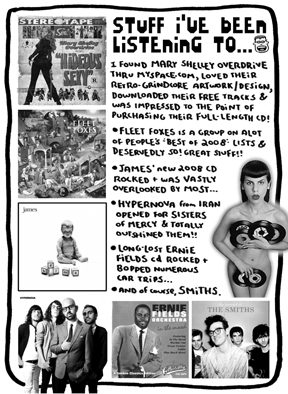 STUFF i'VE BEEN
LiSTENiNG TO...
I FOUND MARY SHELLEY OVERDRIVE
THRU MYSPACE.COM, LOVED THEIR
RETRO-GRINDHORE ARTWORK/DESIGN,
DOWNLOADED THEIR FREE TRACKS &
WAS IMPRESSED TO THE POINT OF
PURCHASING THEIR FULL-LENGTH CD!
• FLEET FOXES IS A GROUP ON ALOT
OF PEOPLE'S 'BEST OF 2008' LISTS &
DESERVEDLY SO! GREAT STUFF!!
• JAMES' NEW 2008 CD
ROCKED + WAS VASTLY
OVERLOOKED BY MOST...
• HYPERNOVA FROM IRAN
OPENED FOR SISTERS
OF MERCY & TOTALLY
OUTSHINED THEM!!
• LONG-LOST ERNIE
FIELDS CD ROCKED +
BOPPED NUMEROUS
CAR TRIPS...
• AND OF COURSE, SMITHS.
STEREO TAPE
Mary Shelley
Overdrive
"HIDEOUS
SEXY"
FLEET
FOXES
james
HYPERNOVA
ERNIE
FIELDS
ORCHESTRA
in the mood
THE SMITHS